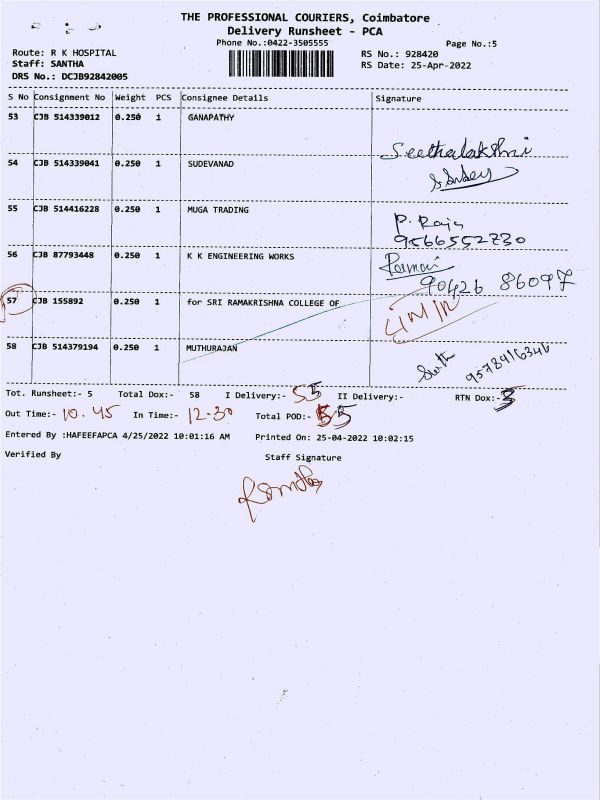 THE PROFESSIONAL COURIERS, Coimbatore
Delivery Runsheet - PCA
Phone No.:0422-3505555
Page No.:5
Route: R K HOSPITAL
RS No.: 928420
Staff: SANTHA
RS Date: 25-Apr-2022
DRS No.: DCJB92842005
S No Consignment No Weight PCS Consignee Details Signature
53 CJB 514339012 0.250 1 GANAPATHY
Seethalakshmi
54 CJB 514339041 0.250 1 SUDEVANAD
55 CJB 514416228 0.250 1 MUGA TRADING
P. Raja
9566552730
56 CJB 87793448 0.250 1 K K ENGINEERING WORKS
90426 86097
57 CJB 155892 0.250 1 for SRI RAMAKRISHNA COLLEGE OF
58 CJB 514379194 0.250 1 MUTHURAJAN
9578916346
Tot. Runsheet:- 5 Total Dox:- 58 I Delivery:- 55 II Delivery:- RTN Dox:- 3
Out Time:- 10.45 In Time:- 12.30 Total POD:- 55
Entered By :HAFEEFAPCA 4/25/2022 10:01:16 AM Printed On: 25-04-2022 10:02:15
Verified By Staff Signature